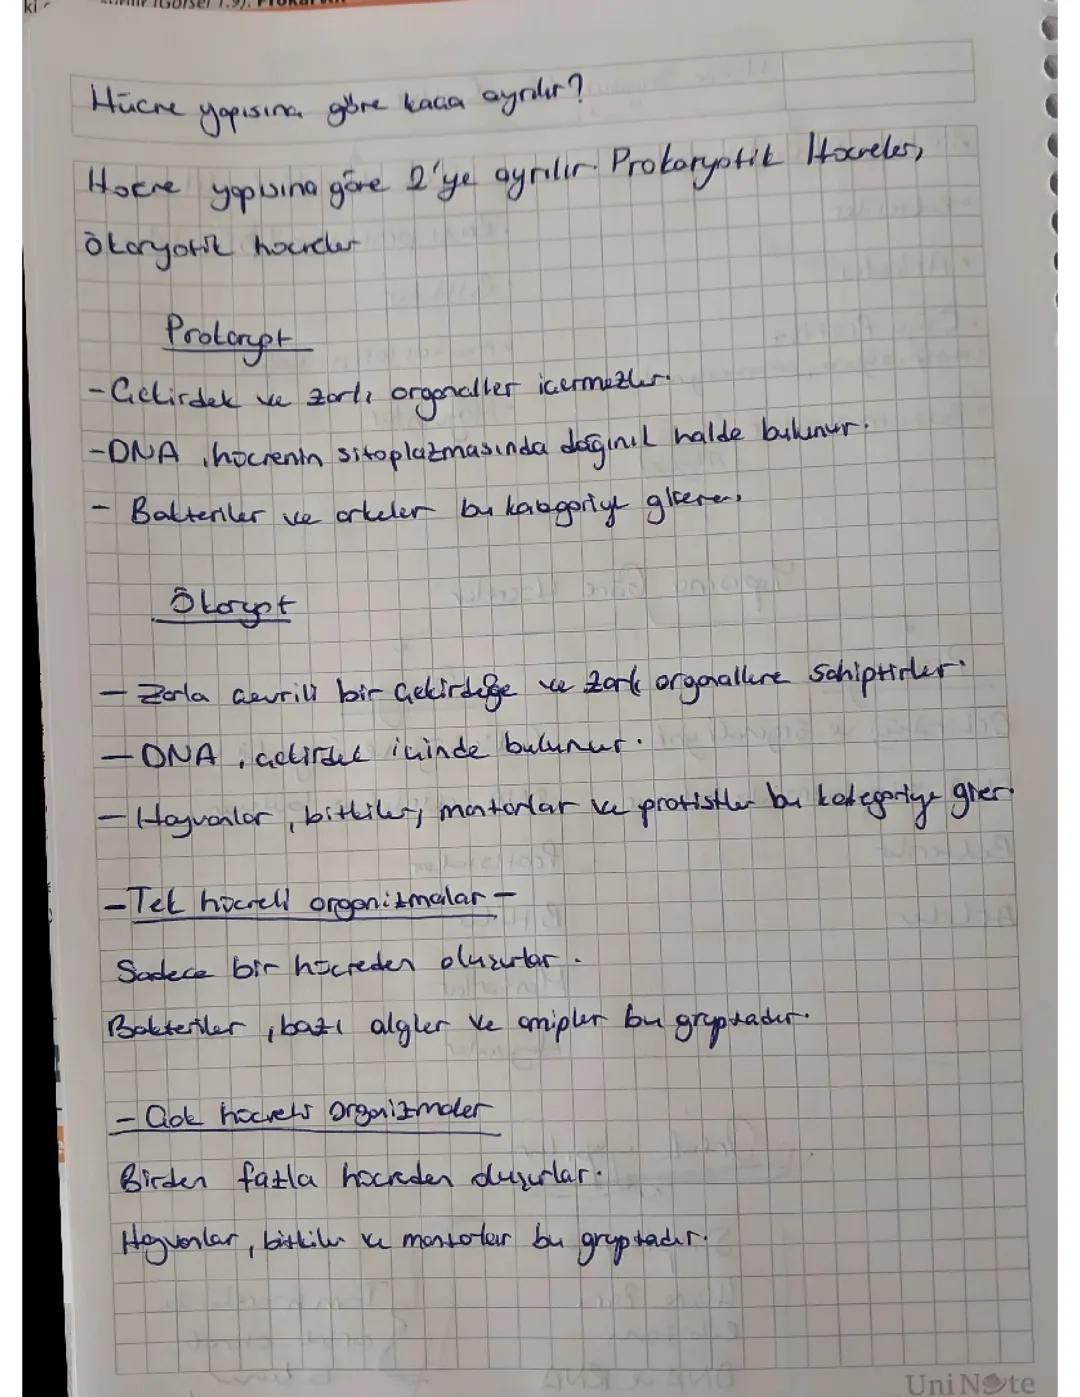 Hücre yapısına göre kaça ayrılır?
Hücre yapısına göre 2'ye ayrılır. Prokaryotik Hücreler,
Ökaryotik hücreler
Prokaryot
-Çekirdek ve zarlı organaller içermezler.
-DNA, hücrenin sitoplazmasında dağınık halde bulunur.
- Bakteriler ve arkeler bu kategoriye
Ökaryot
- Zarla çevrili bir çekirdeğe ve zarlı organallere sahiptirler.
- DNA, çekirdek içinde bulunur.
- Hayvanlar, bitkiler, mantarlar ve protistler bu kategoriye girer.
-Tek hücreli organizmalar-
Sadece bir hücreden oluşurlar.
Bakteriler, bazı algler ve amipler bu gruptadır.
- Çok hücreli organizmalar
Birden fazla hücreden oluşurlar.
Hayvanlar, bitkiler ve mantarlar bu gruptadır.
UniNote